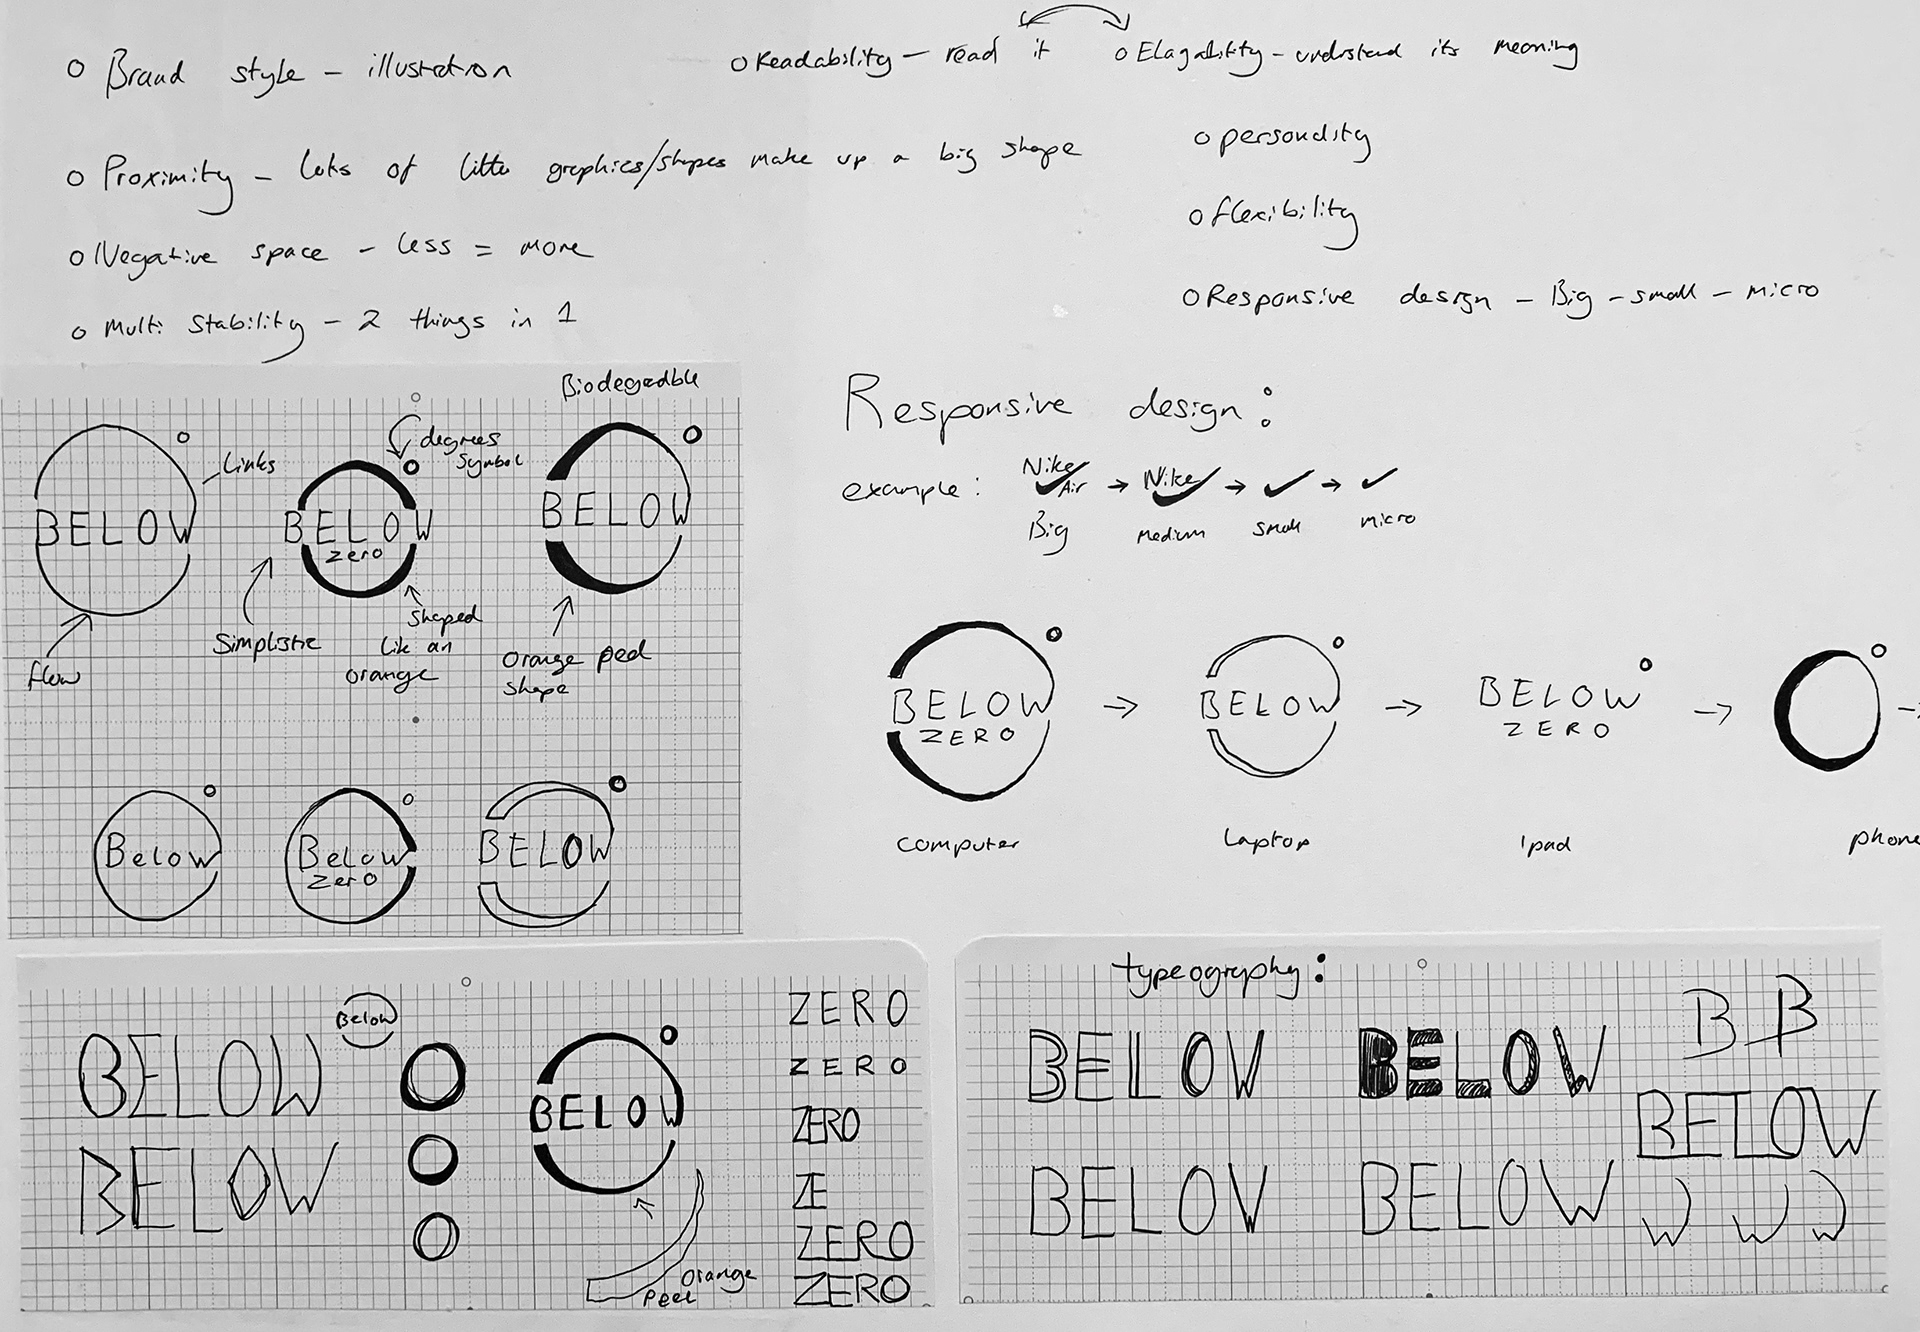 o Brand style - illustration
o Readability - read it
o Elagability - understand its meaning
o Proximity - lots of little graphics/shapes make up a big shape
o personality
o Negative space - less = more
o flexibility
o Multi Stability - 2 things in 1
o Responsive design - Big - small - micro
Biodegradble
degrees
symbol
Links
BELOW
BELOW
zero
BELOW
flow
Simplistic
shaped
like an
orange
orange peel
shape
Below
Below
zero
BELOW
Responsive design:
example:
Nike
Air
→
Nike
→
→
Big
medium
small
micro
BELOW
ZERO
→
BELOW
→
BELOW
ZERO
→
computer
Laptop
Ipad
phone
BELOW
Below
BELOW
BELOW
orange
peel
ZERO
ZERO
ZERO
ZE
ZERO
ZERO
typeography:
BELOW
BELOW
B B
BELOW
BELOW
BELOW
W W W